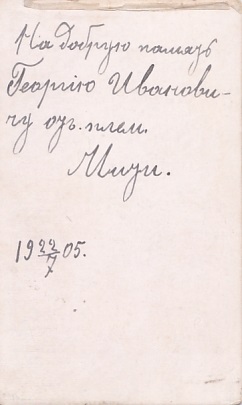 На добрую память
Георгію Иванови-
чу отъ плем.
Мици.
19 22/7 05.